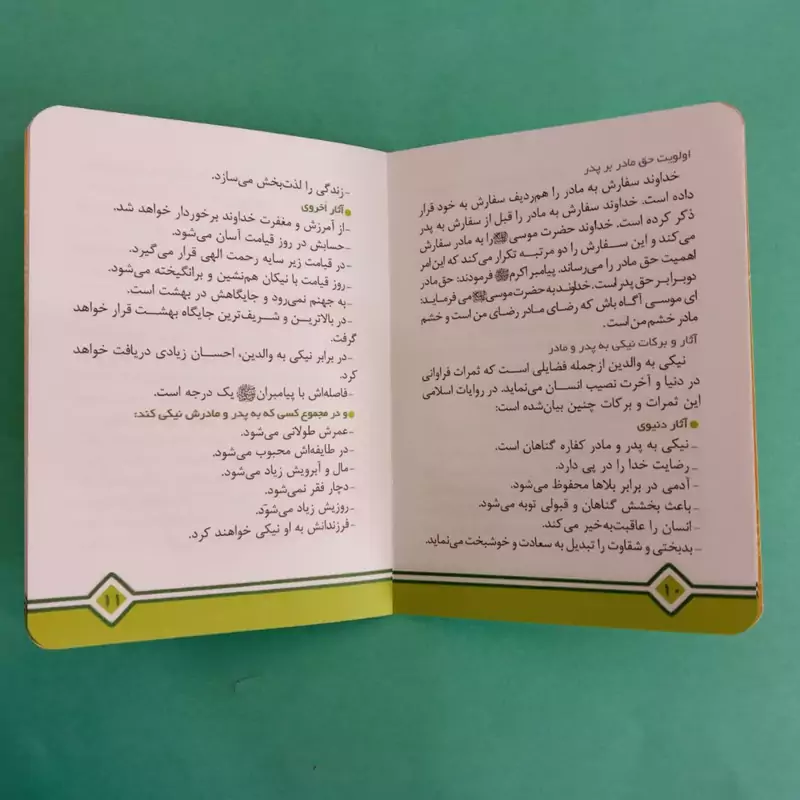 اولویت حق مادر بر پدر
خداوند سفارش به مادر را هم‌ردیف سفارش به خود قرار
داده است. خداوند سفارش به مادر را قبل از سفارش به پدر
ذکر کرده است. خداوند حضرت موسی را به مادر سفارش
می‌کند و این سفارش را دو مرتبه تکرار می‌کند که این امر
اهمیت حق مادر را می‌رساند. پیامبر اکرم ﷺ فرمودند: حق مادر
دو برابر حق پدر است. خداوند به حضرت موسی می‌فرماید:
ای موسی آگاه باش که رضای مادر رضای من است و خشم
مادر خشم من است.
آثار و برکات نیکی به پدر و مادر
نیکی به والدین ازجمله فضایلی است که ثمرات فراوانی
در دنیا و آخرت نصیب انسان می‌نماید. در روایات اسلامی
این ثمرات و برکات چنین بیان‌شده است:
آثار دنیوی
- نیکی به پدر و مادر کفاره گناهان است.
- رضایت خدا را در پی دارد.
- آدمی در برابر بلاها محفوظ می‌شود.
- باعث بخشش گناهان و قبولی توبه می‌شود.
- انسان را عاقبت‌به‌خیر می‌کند.
- بدبختی و شقاوت را تبدیل به سعادت و خوشبخت می‌نماید.
۱۰
- زندگی را لذت‌بخش می‌سازد.
آثار اخروی
- از آمرزش و مغفرت خداوند برخوردار خواهد شد.
- حسابش در روز قیامت آسان می‌شود.
- در قیامت زیر سایه رحمت الهی قرار می‌گیرد.
- روز قیامت با نیکان هم‌نشین و برانگیخته می‌شود.
- به جهنم نمی‌رود و جایگاهش در بهشت است.
- در بالاترین و شریف‌ترین جایگاه بهشت قرار خواهد
گرفت.
- در برابر نیکی به والدین، احسان زیادی دریافت خواهد
کرد.
- فاصله‌اش با پیامبران یک درجه است.
و در مجموع کسی که به پدر و مادرش نیکی کند:
- عمرش طولانی می‌شود.
- در طایفه‌اش محبوب می‌شود.
- مال و آبرویش زیاد می‌شود.
- دچار فقر نمی‌شود.
- روزیش زیاد می‌شود.
- فرزندانش به او نیکی خواهند کرد.
۱۱